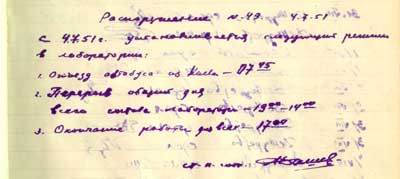 Распоряжение N.49. 4.7.51
С 4.7.51 г. устанавливается следующий режим
в лаборатории:
1. Отъезд автобуса из Киева – 07 45
2. Перерыв общий для
всего состава лаборатории – 13 00 – 14 00
3. Окончание работы для всех 17 00